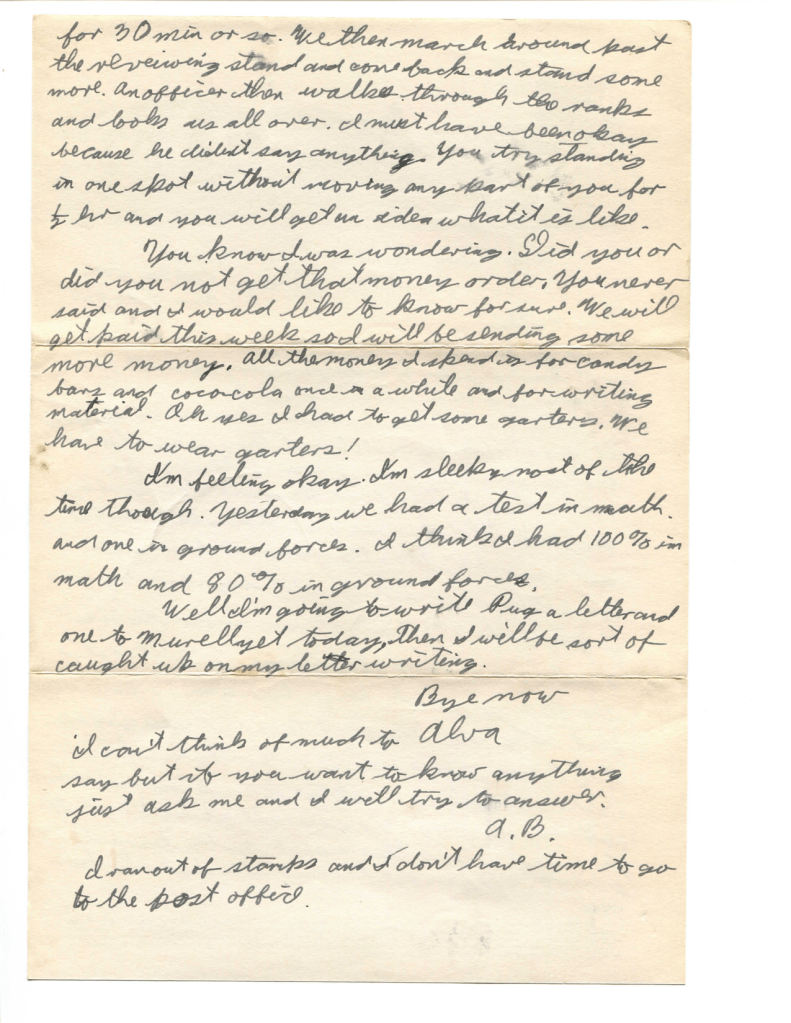 for 30 min or so. We then march around past
the reveiwing stand and come back and stand some
more. An officer then walks through the ranks
and looks us all over. I must have been okay
because he didn't say anything. You try standing
in one spot without moving any part of you for
½ hr and you will get an idea what it is like.
You know I was wondering. Did you or
did you not get that money order. You never
said and I would like to know for sure. We will
get paid this week so I will be sending some
more money. All the money I spend is for candy
bars and cococola once in a while and for writing
material. Oh yes I had to get some garters. We
have to wear garters!
I'm feeling okay. I'm sleepy most of the
time though. Yesterday we had a test in math.
and one in ground forces. I think I had 100% in
math and 80% in ground forces.
Well I'm going to write Pug a letter and
one to Murell yet today, then I will be sort of
caught up on my letter writing.
Bye now
Alva
I can't think of much to
say but if you want to know anything
just ask me and I will try to answer.
A.B.
I ran out of stamps and I don't have time to go
to the post office.